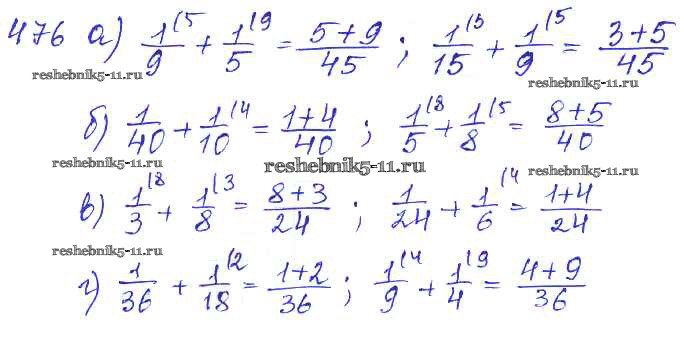 476 а) 1/9^(5 + 1/5^(9 = (5+9)/45 ; 1/15^(3 + 1/9^(5 = (3+5)/45
reshebnik5-11.ru reshebnik5-11.ru
б) 1/40 + 1/10^(4 = (1+4)/40 ; 1/5^(8 + 1/8^(5 = (8+5)/40
reshebnik5-11.ru reshebnik5-11.ru reshebnik5-11.ru
в) 1/3^(8 + 1/8^(3 = (8+3)/24 ; 1/24 + 1/6^(4 = (1+4)/24
reshebnik5-11.ru
г) 1/36 + 1/18^(2 = (1+2)/36 ; 1/9^(4 + 1/4^(9 = (4+9)/36